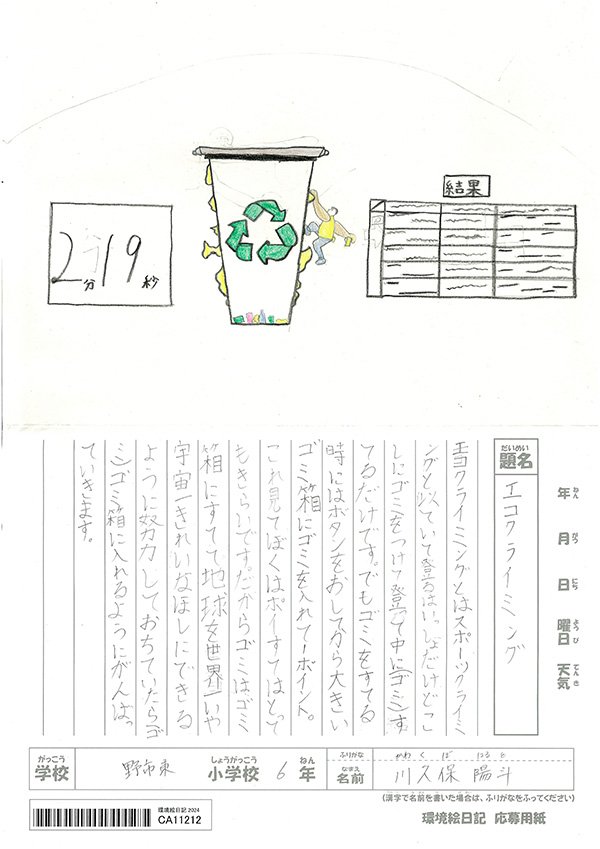 2分19秒
結果
題名
だいめい
エコクライミング
年 ねん
月 がつ
日 にち
曜日 ようび
天気 てんき
エコクライミングとはスポーツクライミ
ングと似ていて登るはいっしょだけどこ
しにゴミをつけて登って中に(ゴミ)す
てるだけです。でもゴミをすてる
時にはボタンをおしてから大きい
ゴミ箱にゴミを入れて1ポイント。
これ見てぼくはポイすてはとって
もきらいです。だからゴミはゴミ
箱にすてて地球を世界一いや
宇宙一きれいなほしにできる
ように努力しておちていたらゴ
ミ(ゴミ箱に入れるようにがんばっ
ていきます。
がっこう しょうがっこう ねん
学校 野市東 小学校 6年
ふりがな かわくぼ はると
なまえ
名前 川久保 陽斗
(漢字で名前を書いた場合は、ふりがなをふってください)
環境絵日記 2024
CA11212
環境絵日記 応募用紙